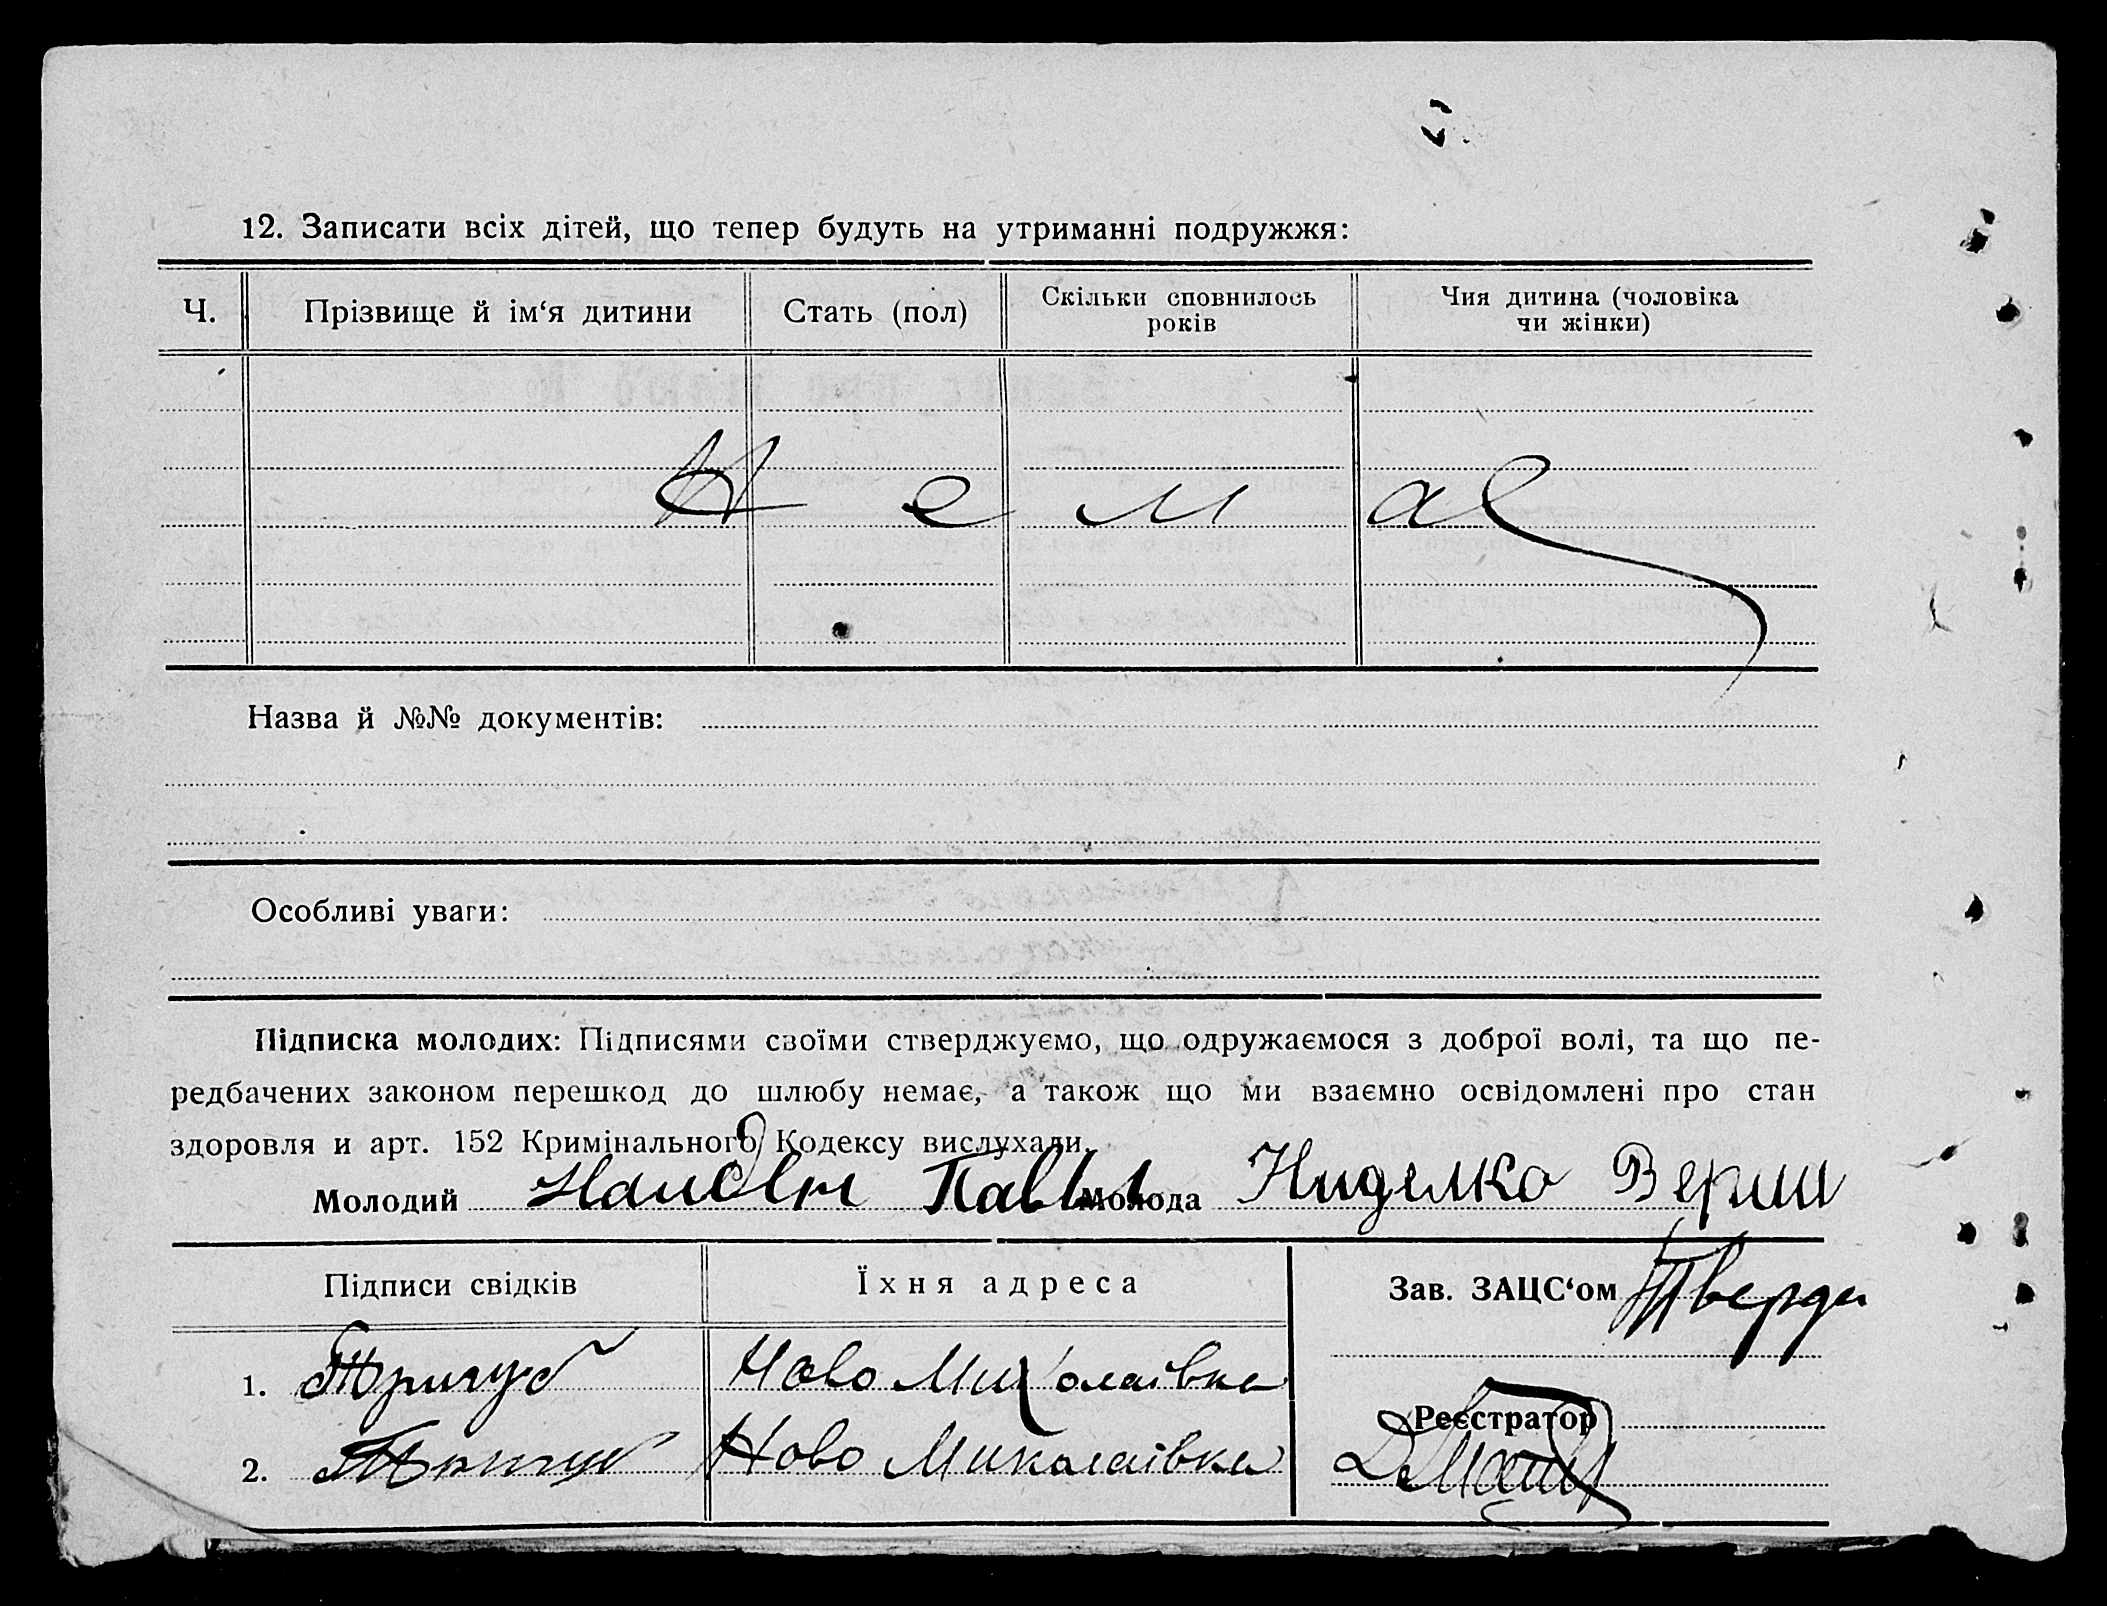 12. Записати всіх дітей, що тепер будуть на утриманні подружжя:
Ч. Прізвище й ім‘я дитини Стать (пол) Скільки сповнилось років Чия дитина (чоловіка чи жінки)
Немає
Назва й №№ документів:
Особливі уваги:
Підписка молодих: Підписями своїми стверджуємо, що одружаємося з доброї волі, та що пе-
редбачених законом перешкод до шлюбу немає, а також що ми взаємно освідомлені про стан
здоровля и арт. 152 Кримінального Кодексу вислухали.
Молодий Павло Молода Ниделко
Підписи свідків Їхня адреса Зав. ЗАЦС‘ом
1. Тригуб Ново Миколаівка
Реєстратор
2. Ново Миколаівка